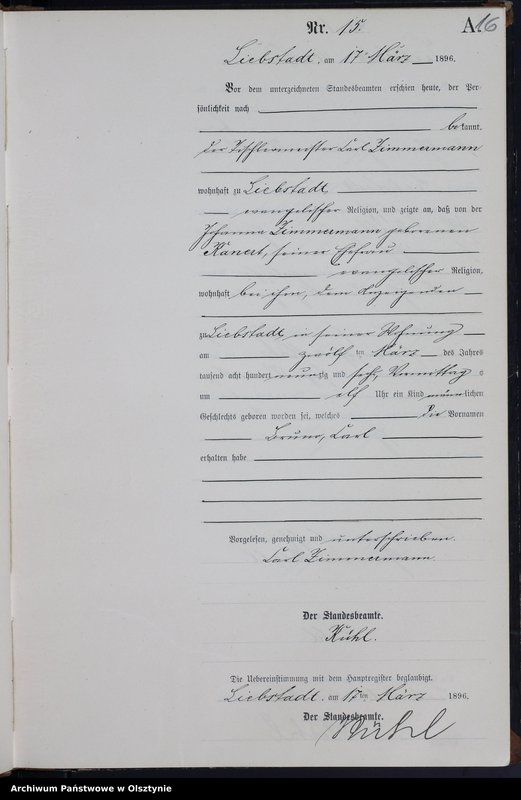 Nr. 15.
A.
16
Liebstadt, am 17ten März 1896.
Vor dem unterzeichneten Standesbeamten erschien heute, der Per-
sönlichkeit nach
bekannt,
der Tischlermeister Carl Zimmermann
wohnhaft zu Liebstadt,
evangelischer Religion, und zeigte an, daß von der
Johanna Zimmermann geborenen
Kanert, seiner Ehefrau
evangelischer Religion,
wohnhaft bei ihm, dem Anzeigenden
zu Liebstadt in seiner Wohnung
am zwölften März des Jahres
tausend acht hundert neunzig und sechs, Vormittag s
um elf Uhr ein Kind männlichen
Geschlechts geboren worden sei, welches die Vornamen
Bruno, Carl
erhalten habe
Vorgelesen, genehmigt und unterschrieben.
Carl Zimmermann.
Der Standesbeamte.
Kühl.
Die Uebereinstimmung mit dem Hauptregister beglaubigt.
Liebstadt, am 17ten März 1896.
Der Standesbeamte.
Kühl
Archiwum Państwowe w Olsztynie